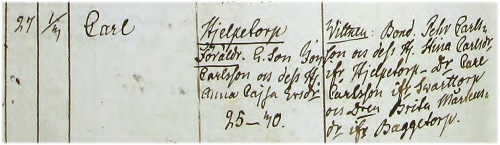 27 1/7 Carl
Hjelpetorp
Föräldr. G.Son Jon
Carlsson och dess H.
Anna Cajsa Ersdr
25–40.
Vittnen: Bond. Pehr Carls-
son och dess H. Stina Carlsdr
ifr Hjelpetorp – dr. Carl
Carlsson ifr Swarttorp
och Dren Brita Mårtens-
dr ifr Baggetorp.